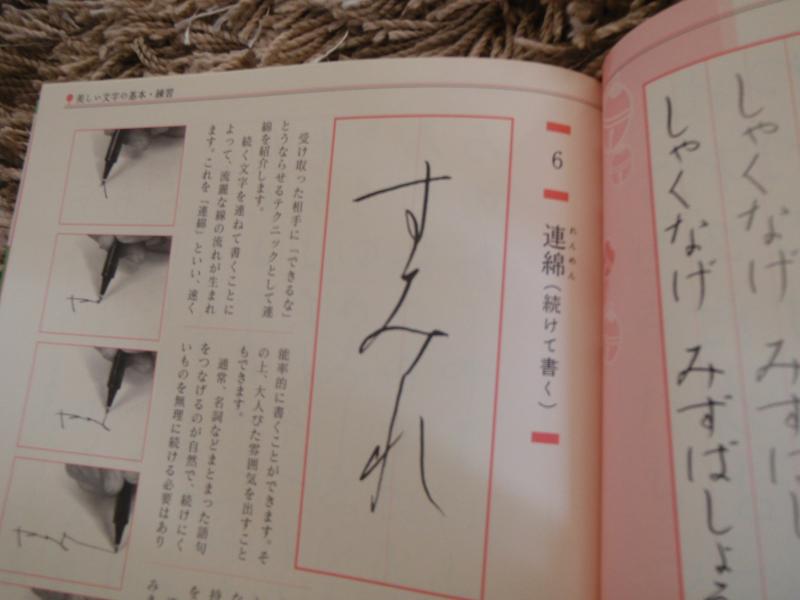 美しい文字の基本・練習
しゃくなげ みずばしょう
しゃくなげ
6
連綿（続けて書く）
れんめん
すみれ
受け取った相手に「できるな」
とうならせるテクニックとして連
綿を紹介します。
続く文字を連ねて書くことに
よって、流麗な線の流れが生まれ
ます。これを「連綿」といい、速く
能率的に書くことができます。そ
の上、大人びた雰囲気を出すこと
もできます。
通常、名詞などまとまった語句
をつなげるのが自然で、続けにく
いものを無理に続ける必要はあり